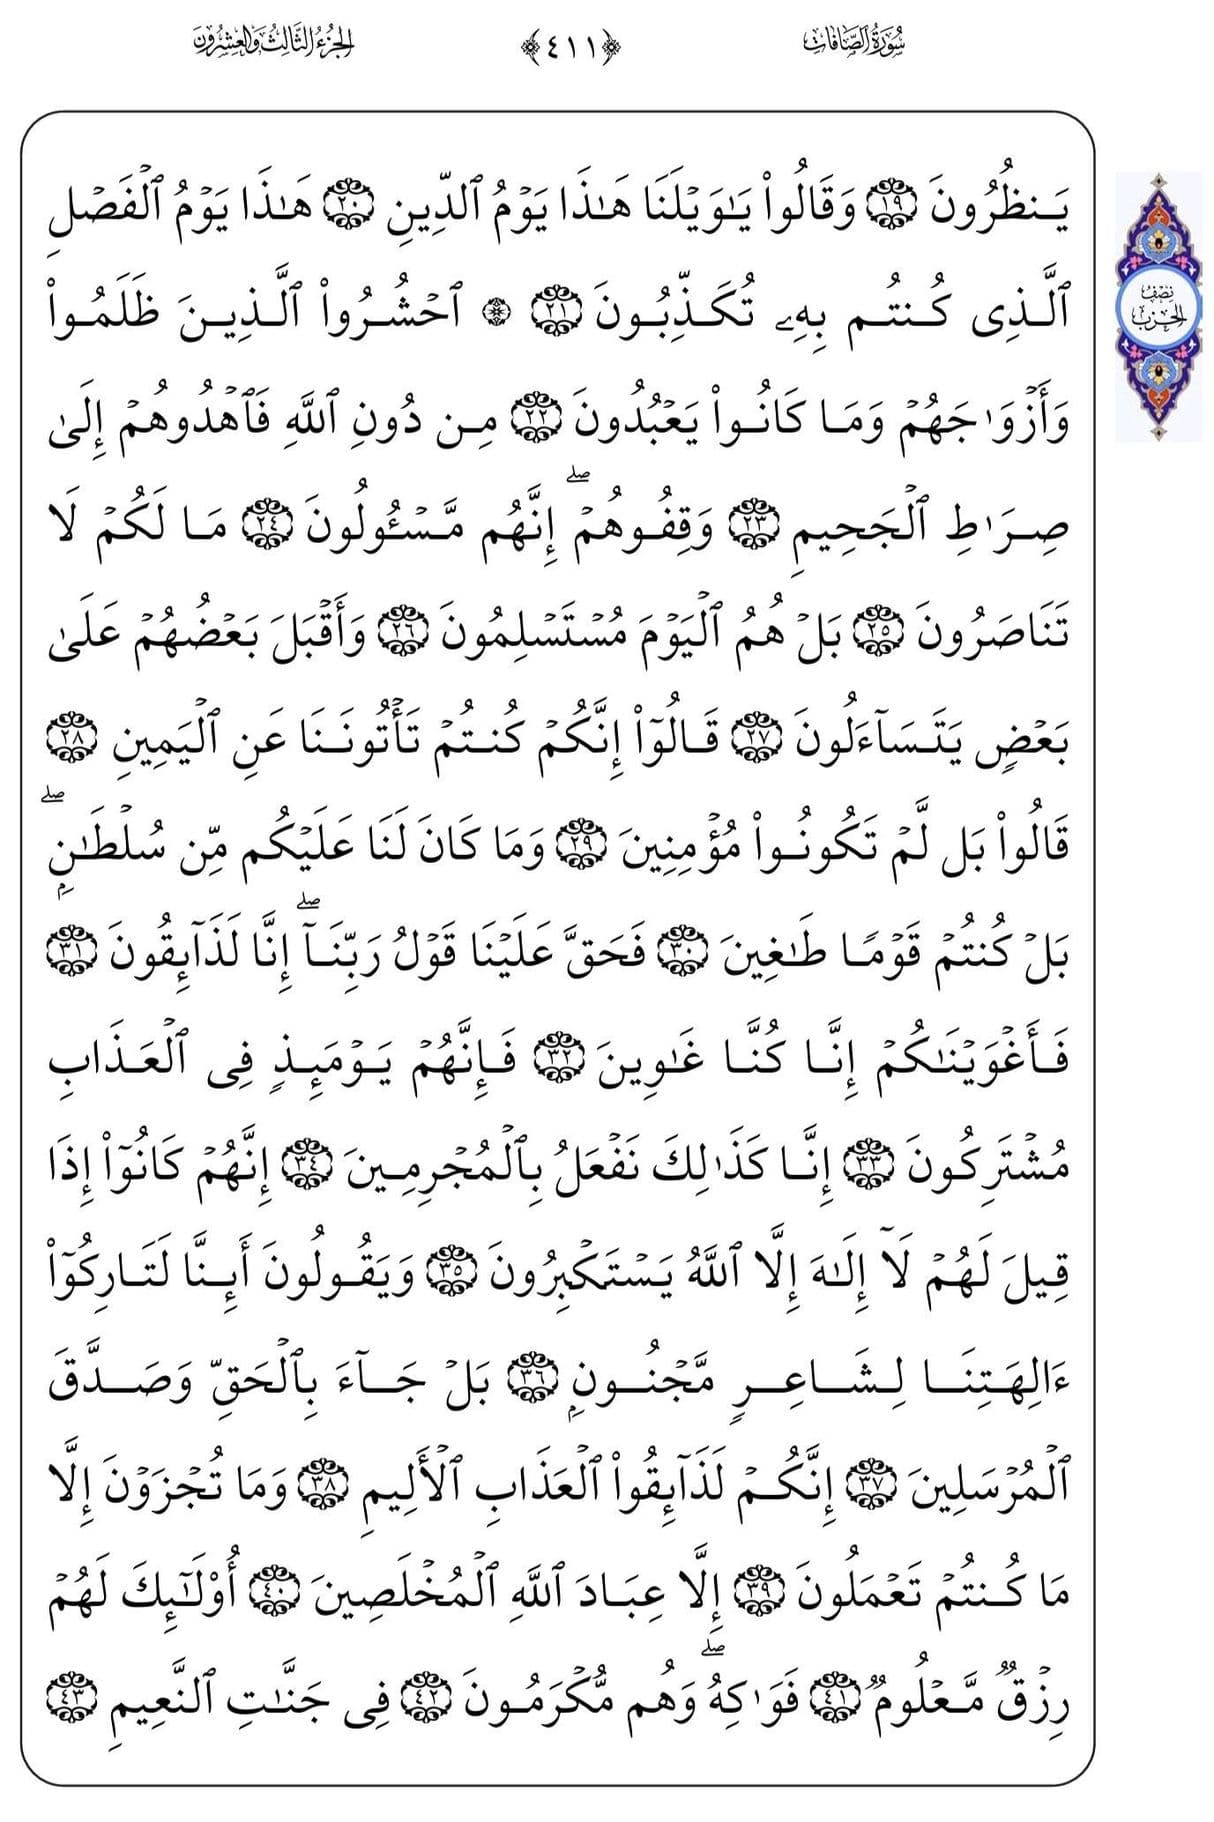 سُورَةُ الصَّافَّاتِ
﴿٤١١﴾
الجُزْءُ الثَّالِثُ وَالعِشْرُونَ
يَنظُرُونَ ١٩ وَقَالُواْ يَٰوَيْلَنَا هَٰذَا يَوْمُ ٱلدِّينِ ٢٠ هَٰذَا يَوْمُ ٱلْفَصْلِ
ٱلَّذِى كُنتُم بِهِۦ تُكَذِّبُونَ ٢١ ۞ ٱحْشُرُواْ ٱلَّذِينَ ظَلَمُواْ
وَأَزْوَٰجَهُمْ وَمَا كَانُواْ يَعْبُدُونَ ٢٢ مِن دُونِ ٱللَّهِ فَٱهْدُوهُمْ إِلَىٰ
صِرَٰطِ ٱلْجَحِيمِ ٢٣ وَقِفُوهُمْۖ إِنَّهُم مَّسْـُٔولُونَ ٢٤ مَا لَكُمْ لَا
تَنَاصَرُونَ ٢٥ بَلْ هُمُ ٱلْيَوْمَ مُسْتَسْلِمُونَ ٢٦ وَأَقْبَلَ بَعْضُهُمْ عَلَىٰ
بَعْضٍ يَتَسَآءَلُونَ ٢٧ قَالُوٓاْ إِنَّكُمْ كُنتُمْ تَأْتُونَنَا عَنِ ٱلْيَمِينِ ٢٨
قَالُواْ بَل لَّمْ تَكُونُواْ مُؤْمِنِينَ ٢٩ وَمَا كَانَ لَنَا عَلَيْكُم مِّن سُلْطَٰنِۭۖ
بَلْ كُنتُمْ قَوْمًا طَٰغِينَ ٣٠ فَحَقَّ عَلَيْنَا قَوْلُ رَبِّنَآۖ إِنَّا لَذَآئِقُونَ ٣١
فَأَغْوَيْنَٰكُمْ إِنَّا كُنَّا غَٰوِينَ ٣٢ فَإِنَّهُمْ يَوْمَئِذٍ فِى ٱلْعَذَابِ
مُشْتَرِكُونَ ٣٣ إِنَّا كَذَٰلِكَ نَفْعَلُ بِٱلْمُجْرِمِينَ ٣٤ إِنَّهُمْ كَانُوٓاْ إِذَا
قِيلَ لَهُمْ لَآ إِلَٰهَ إِلَّا ٱللَّهُ يَسْتَكْبِرُونَ ٣٥ وَيَقُولُونَ أَئِنَّا لَتَارِكُوٓاْ
ءَالِهَتِنَا لِشَاعِرٍ مَّجْنُونِۭ ٣٦ بَلْ جَآءَ بِٱلْحَقِّ وَصَدَّقَ
ٱلْمُرْسَلِينَ ٣٧ إِنَّكُمْ لَذَآئِقُواْ ٱلْعَذَابِ ٱلْأَلِيمِ ٣٨ وَمَا تُجْزَوْنَ إِلَّا
مَا كُنتُمْ تَعْمَلُونَ ٣٩ إِلَّا عِبَادَ ٱللَّهِ ٱلْمُخْلَصِينَ ٤٠ أُوْلَٰٓئِكَ لَهُمْ
رِزْقٌ مَّعْلُومٌ ٤١ فَوَٰكِهُۖ وَهُم مُّكْرَمُونَ ٤٢ فِى جَنَّٰتِ ٱلنَّعِيمِ ٤٣
نِصْف
الحِزْب